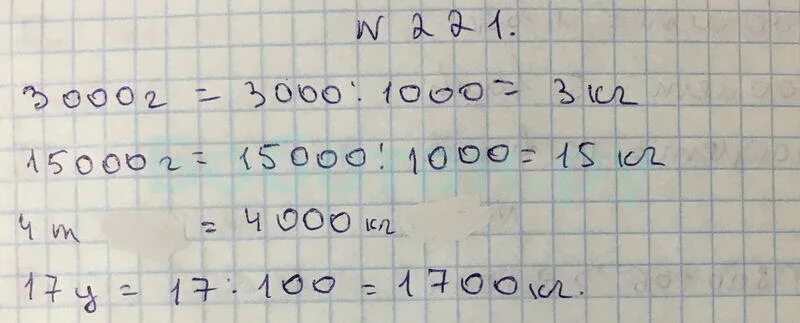 N 221.
3000г = 3000:1000= 3 кг
15000г= 15000:1000=15 кг
4 т = 4000кг
17ц = 17:100 = 1700кг.